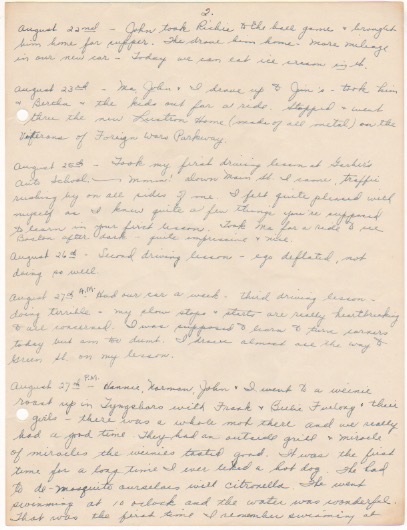 2.
August 22nd - John took Richie to the ball game & brought
him home for supper. We drove him home - more mileage
in our new car - Today we can eat ice cream in it.
August 23rd - Ma, John & I drove up to Jim's - took him
& Bertha & the kids out for a ride. Stopped & went
thru the new Lustron Home (made of all metal) on the
Veterans of Foreign Wars Parkway.
August 25th - Took my first driving lesson at
Auto School. Mmm! Down Main St. I came, traffic
rushing by on all sides of me. I felt quite pleased with
myself as I knew quite a few things you're supposed
to learn in your first lesson. Took Ma for a ride to see
Boston after dark - quite impressive & nice.
August 26th - Second driving lesson - ego deflated, not
doing so well.
August 27th A.M. Had our car a week. Third driving lesson -
doing terrible & my slow stops & starts are really heartbreaking
to all concerned. I was supposed to learn to turn corners
today but am too dumb. I drove almost all the way to
Green St. on my lesson.
August 27th P.M. - Nannie, Norman, John & I went to a weenie
roast up in Tyngsboro with Frank & Furlong & their
girls - there was a whole mob there and we really
had a good time. They had an outside grill & miracle
of miracles the weenies tasted good. It was the first
time for a long time I ever liked a hot dog. We had
to de-mosquito ourselves with citronella. We went
swimming at 10 o'clock and the water was wonderful.
That was the first time I remember swimming at